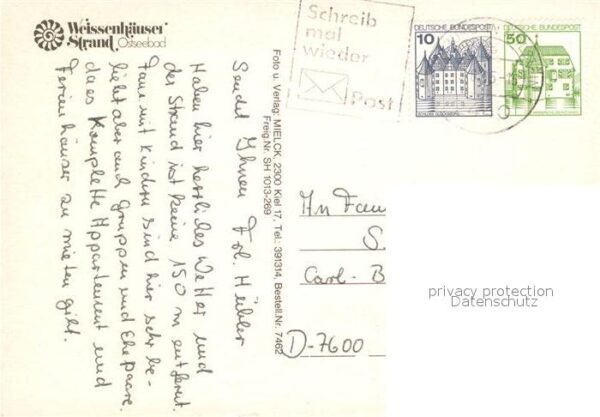 Weissenhäuser
Strand Ostseebad
Schreib
mal
wieder
Post
DEUTSCHE BUNDESPOST
10
DEUTSCHE BUNDESPOST
50
Haben hier herrliches Wetter und
der Strand ist keine 150 m entfernt.
mit Kindern sind hier sehr be-
liebt aber auch Gruppen und Ehepaare.
da es komplette Appartement und
Ferienhäuser zu mieten gibt.
Sendet Ihnen Frl. Hübler
Foto u. Verlag: MIELCK, 2300 Kiel 17, Tel.: 391314, Bestell.Nr. 7462
Freig.Nr. SH 1013-269
An Fam
S.
Carl-B
D-7600
privacy protection
Datenschutz